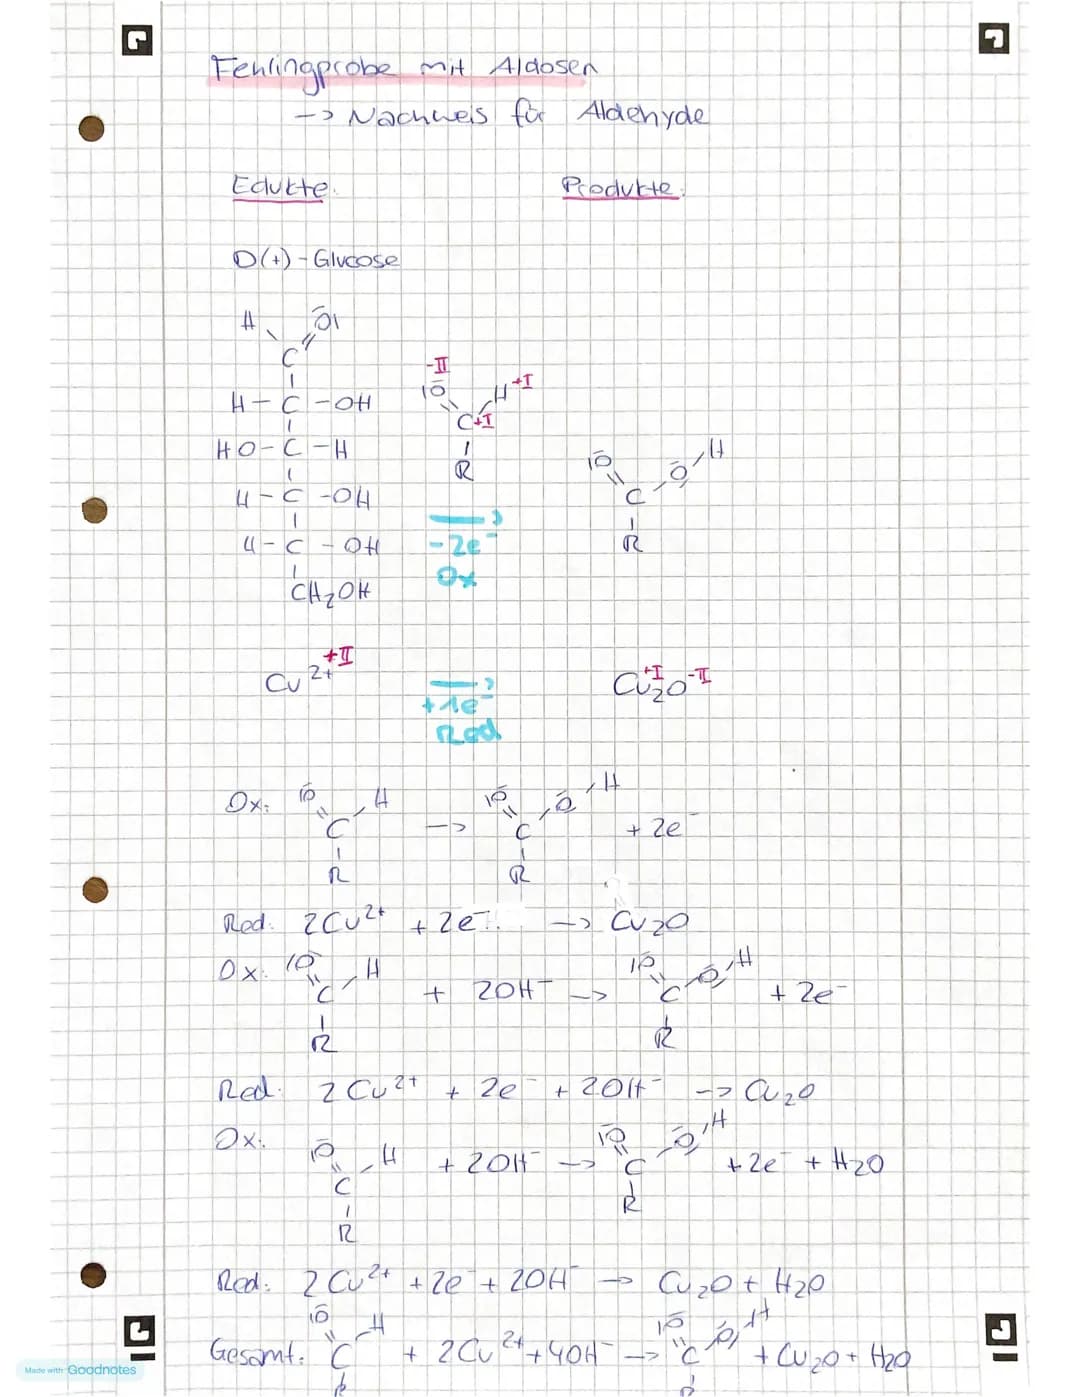 Fehlingprobe mit Aldosen
-> Nachweis für Aldehyde
Edukte: Produkte:
D(+)-Glucose
H O
C
H-C-OH
HO-C-H
H-C-OH
H-C-OH
CH2OH
-II
O H +I
C +I
R
-2e-
Ox
O O H
C
R
Cu2+ +II
+1e-
Red
+I -II
Cu2O
Ox: O H C R -> O C O H R + 2e-
Red: 2Cu2+ + 2e- -> Cu2O
Ox: O H C R + 2OH- -> O C O H R + 2e-
Red: 2Cu2+ + 2e- + 2OH- -> Cu2O
Ox: O H C R + 2OH- -> O C O H R + 2e- + H2O
Red: 2Cu2+ + 2e- + 2OH- -> Cu2O + H2O
Gesamt: O H C R + 2Cu2+ + 4OH- -> O C O H R + Cu2O + H2O
Made with Goodnotes